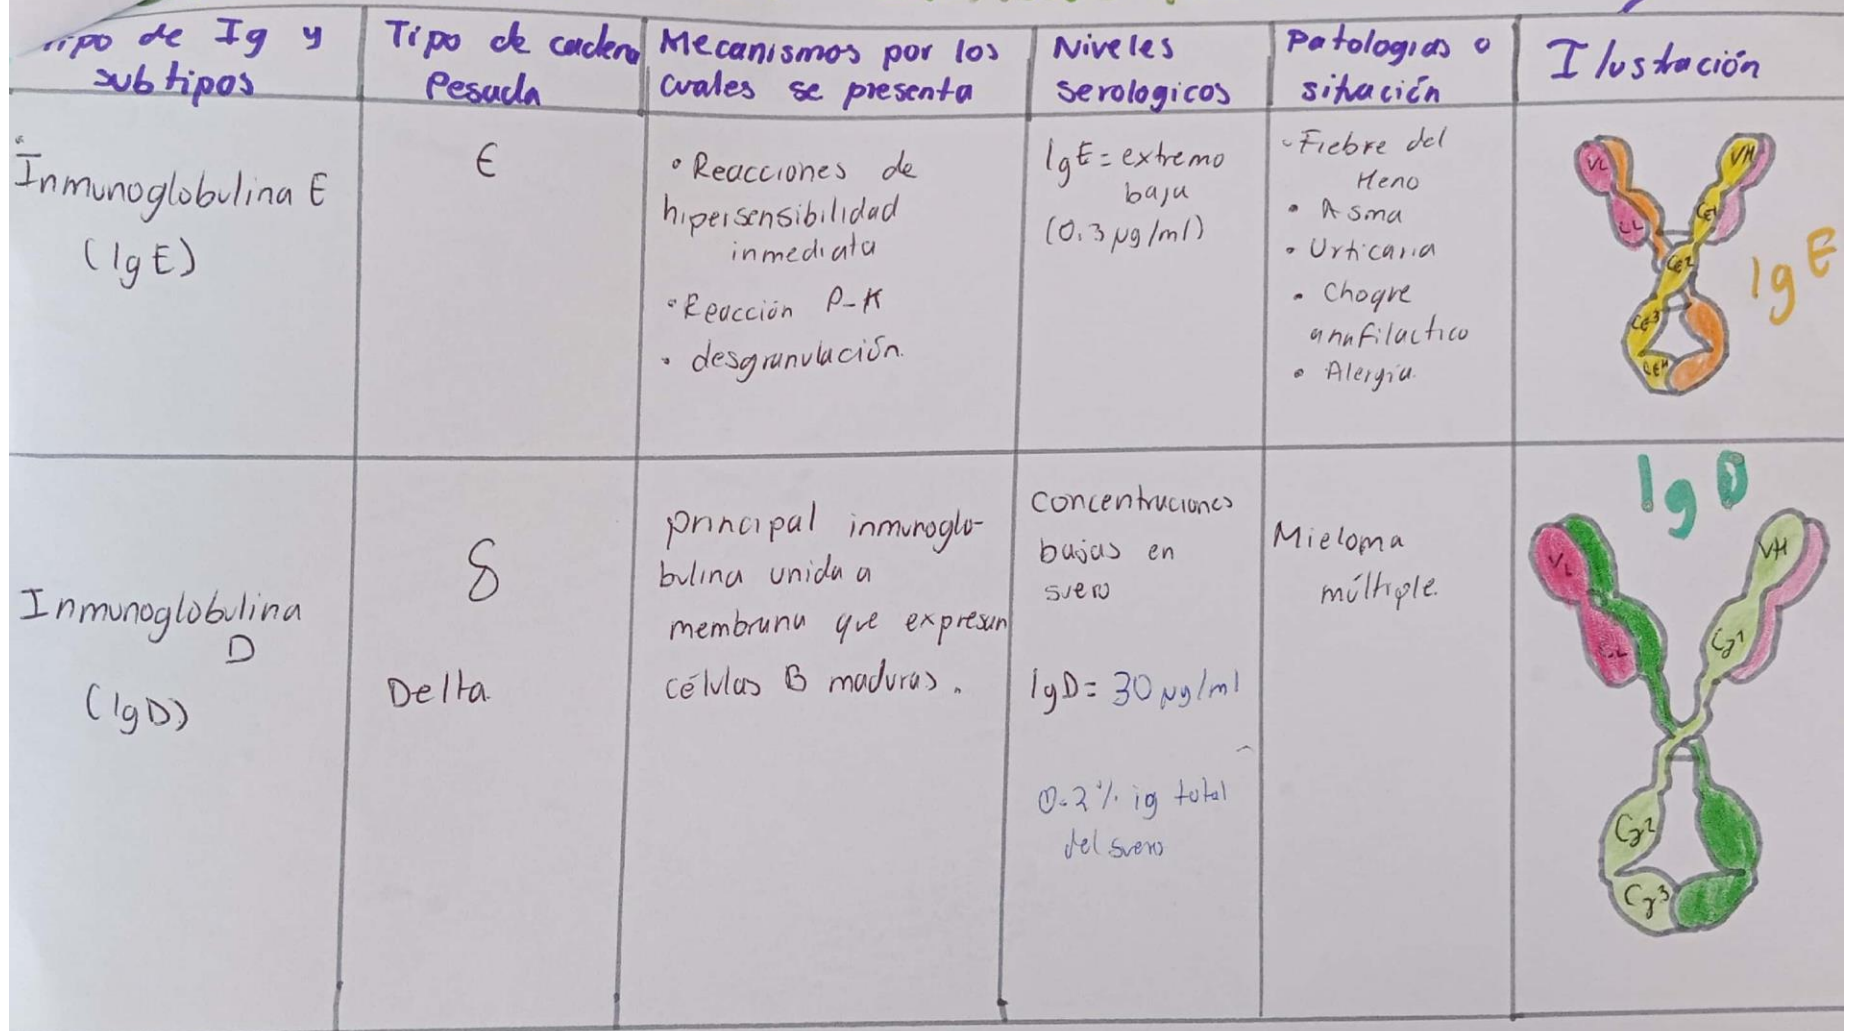 Tipo de Ig y
subtipos
Tipo de cadena
Pesada
Mecanismos por los
cuales se presenta
Niveles
serologicos
Patologias o
situación
Ilustración
Inmunoglobulina E
(IgE)
ϵ
• Reacciones de
hipersensibilidad
inmediata
• Reacción P-K
• desgranulación.
IgE = extremo
baja
(0.3 μg/ml)
- Fiebre del
Heno
• Asma
• Urticaria
• Choque
anafilactico
• Alergia.
VL
CL
VH
Cε1
Cε2
Cε3
Cε4
IgE
Inmunoglobulina
D
(IgD)
δ
Delta
principal inmunoglo-
bulina unida a
membrana que expresan
células B maduras.
Concentraciones
bajas en
suero
IgD = 30 μg/ml
0.2% ig total
del suero
Mieloma
múltiple.
IgD
VL
CL
VH
Cγ1
Cγ2
Cγ3